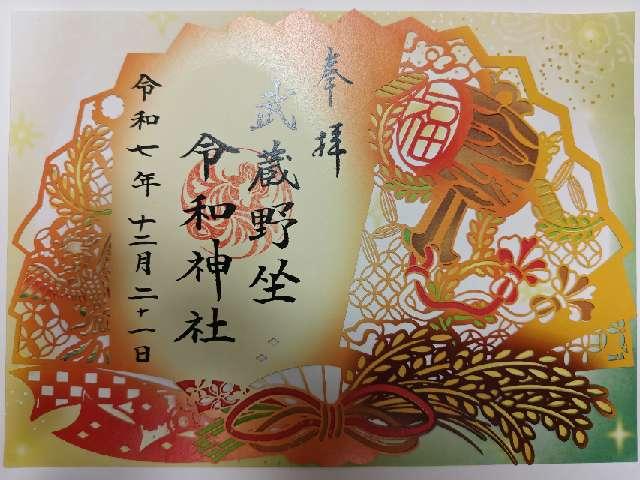 奉拝
武蔵野坐
令和神社
令和七年 十二月 二十一日
福